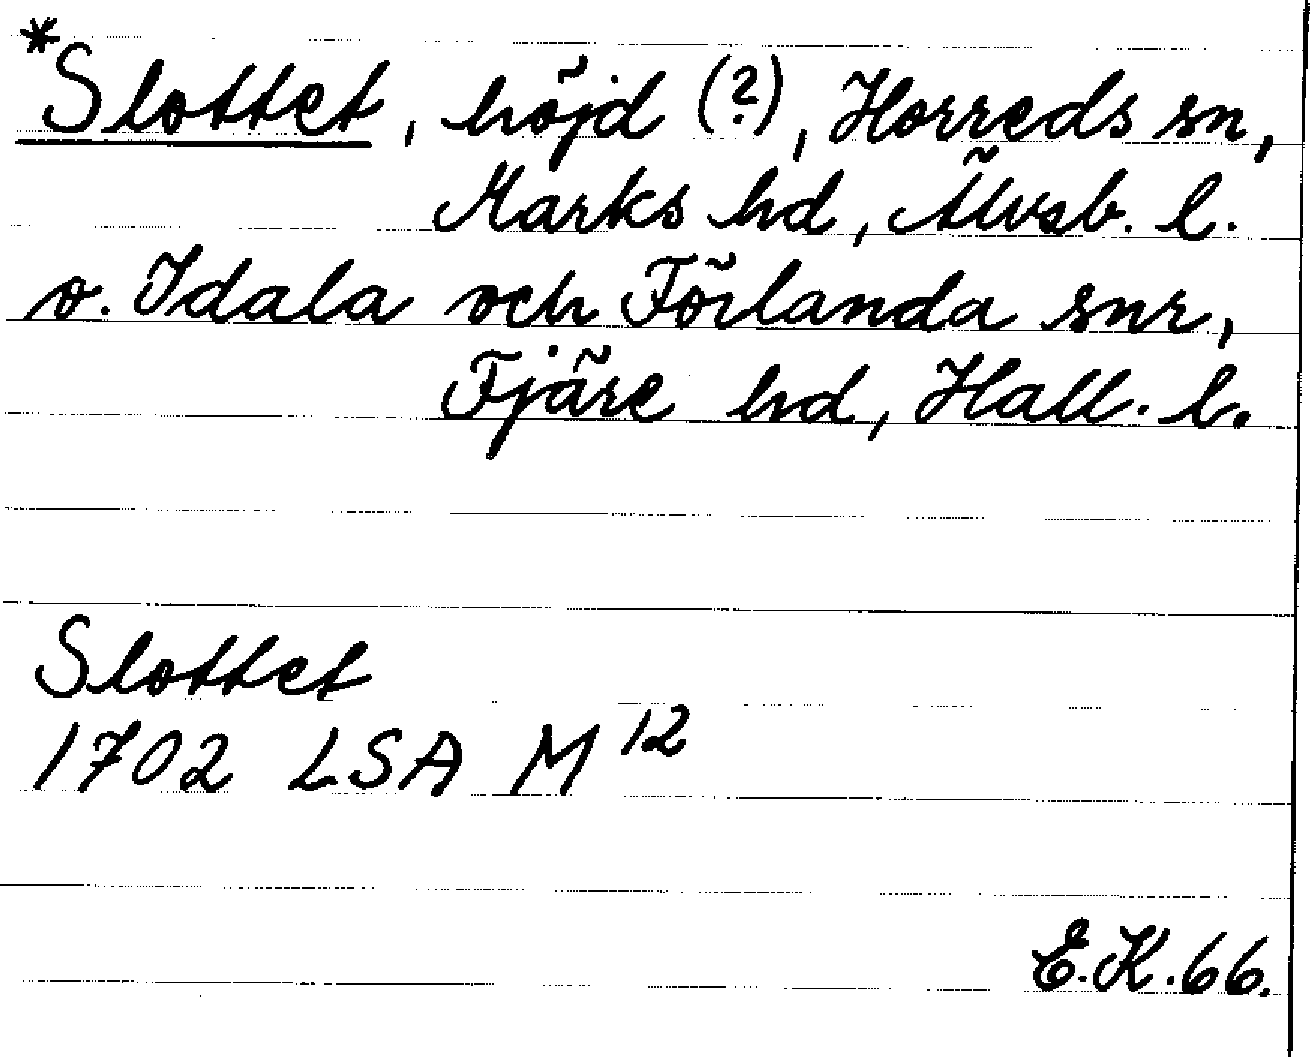 *Slottet, höjd (?), Horreds sn,
Marks hd, Älvsb. l.
o. Idala och Förlanda snr,
Fjäre hd, Hall. l.
Slottet
1702 LSA M 12
E.K.66.